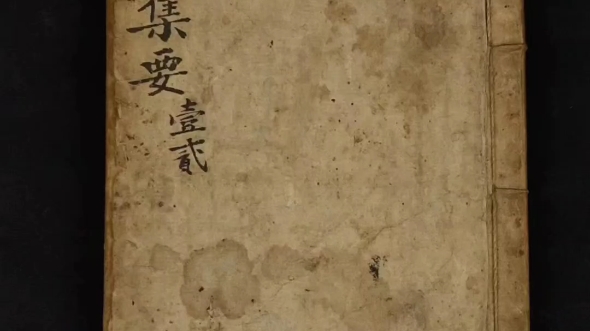 集要
壹貳